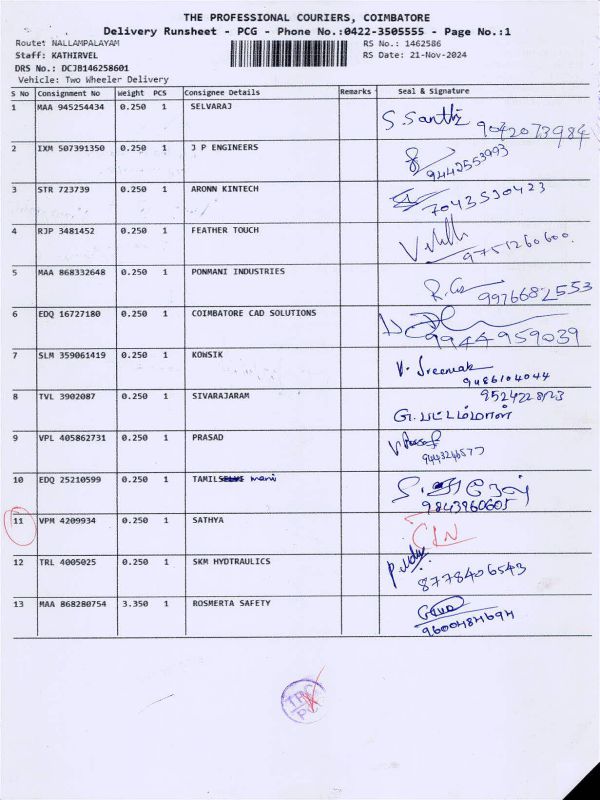 THE PROFESSIONAL COURIERS, COIMBATORE
Delivery Runsheet - PCG - Phone No.:0422-3505555 - Page No.:1
Route: NALLAMPALAYAM RS No.: 1462586
Staff: KATHIRVEL RS Date: 21-Nov-2024
DRS No.: DCJB146258601
Vehicle: Two Wheeler Delivery
S No Consignment No Weight PCS Consignee Details Remarks Seal & Signature
1 MAA 945254434 0.250 1 SELVARAJ S. Santhi 9042073984
2 IXM 507391350 0.250 1 J P ENGINEERS 9442553993
3 STR 723739 0.250 1 ARONN KINTECH 7043530423
4 RJP 3481452 0.250 1 FEATHER TOUCH 9751260600
5 MAA 868332648 0.250 1 PONMANI INDUSTRIES 9976682553
6 EDQ 16727180 0.250 1 COIMBATORE CAD SOLUTIONS 9944959039
7 SLM 359061419 0.250 1 KOWSIK V. Sreenak
9486104044
8 TVL 3902087 0.250 1 SIVARAJARAM
9 VPL 405862731 0.250 1 PRASAD
10 EDQ 25210599 0.250 1 TAMIL mani
9843960605
11 VPM 4209934 0.250 1 SATHYA
12 TRL 4005025 0.250 1 SKM HYDTRAULICS 8778406543
13 MAA 868280754 3.350 1 ROSMERTA SAFETY